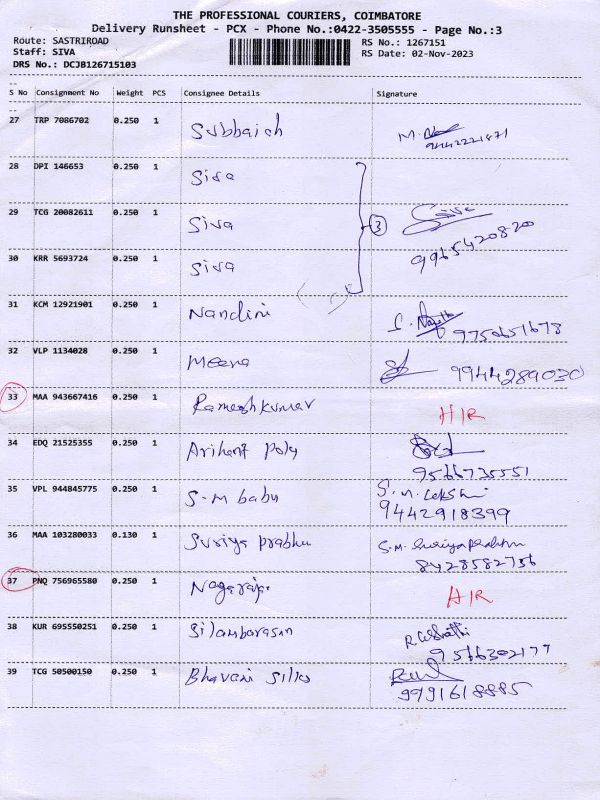 THE PROFESSIONAL COURIERS, COIMBATORE
Delivery Runsheet - PCX - Phone No.:0422-3505555 - Page No.:3
Route: SASTRIROAD RS No.: 1267151
Staff: SIVA RS Date: 02-Nov-2023
DRS No.: DCJB126715103
S No Consignment No Weight PCS Consignee Details Signature
27 TRP 7086702 0.250 1 Subbaiah M.
28 DPI 146653 0.250 1 Siva
29 TCG 20082611 0.250 1 Siva 3 Siva
9965420820
30 KRR 5693724 0.250 1 Siva
31 KCM 12921901 0.250 1 Nandini
9750651678
32 VLP 1134028 0.250 1 Meena 9944289030
33 MAA 943667416 0.250 1 Rameshkumar H/R
34 EDQ 21525355 0.250 1 Arihant Poly
9566735551
35 VPL 944845775 0.250 1 S-M babu S.M. Lekshmi
9442918399
36 MAA 103280033 0.130 1 Suriya prabhu S.M. Suriya Prabhu
8428582756
37 PNQ 756965580 0.250 1 Nagaraja H/R
38 KUR 695550251 0.250 1 Silambarasan
9566302177
39 TCG 50500150 0.250 1 Bhavani Silks
9991618885